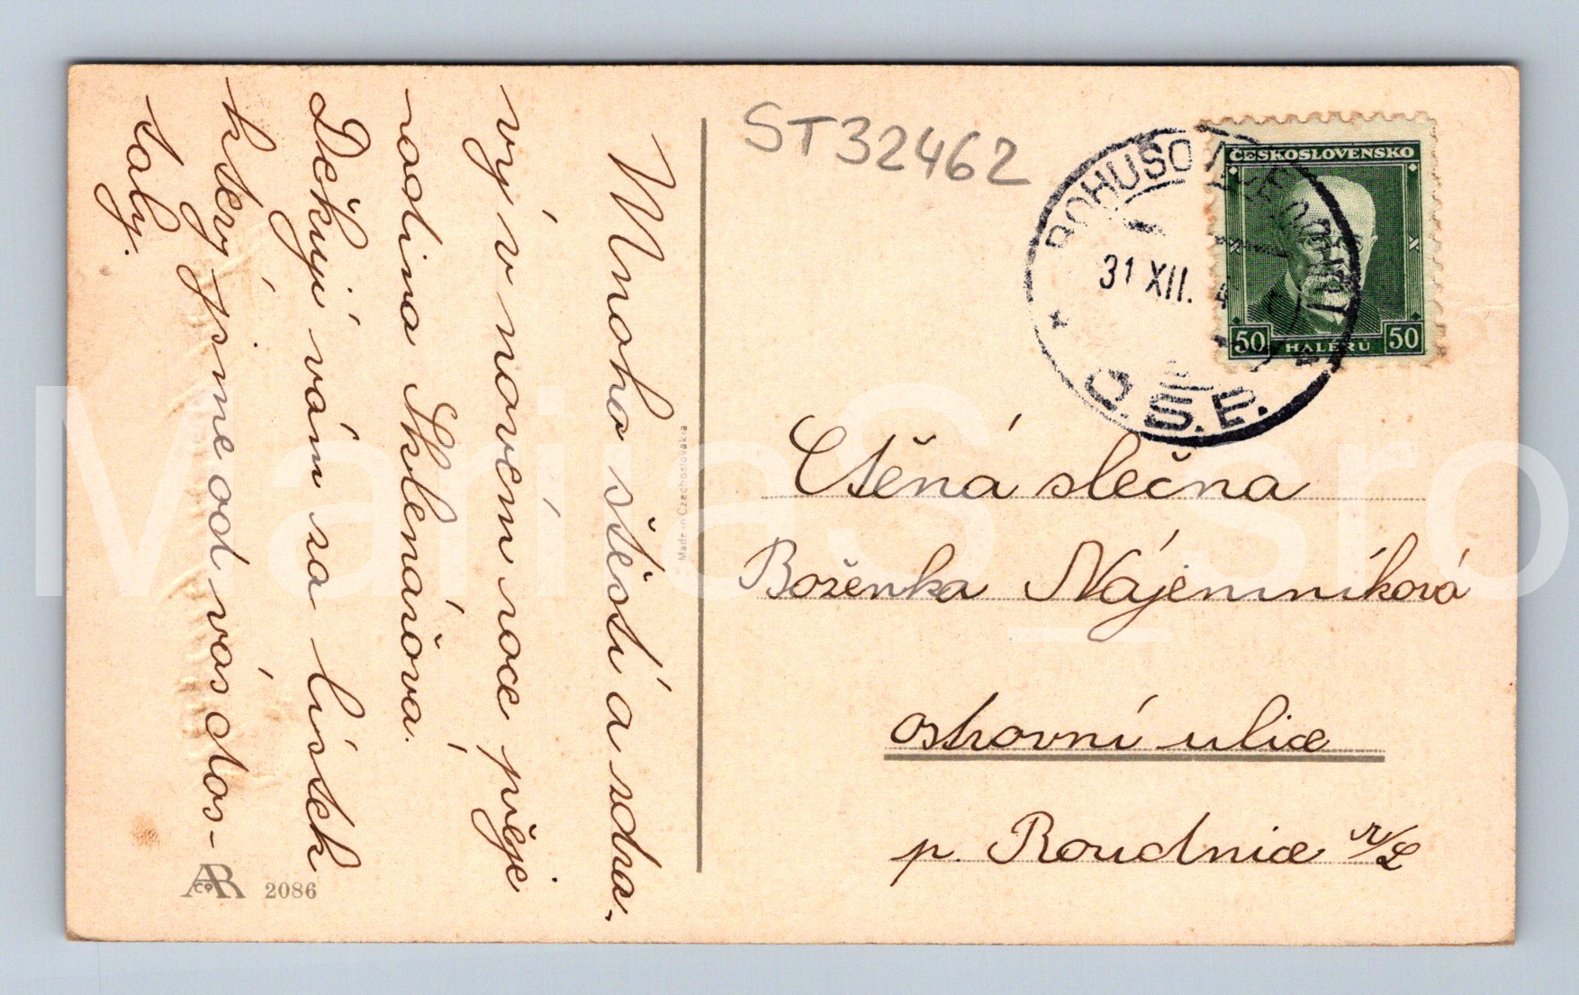 Mnoho štěstí a zdra-
ví v novém roce přeje
rodina Sklenářova.
Děkuji vám za lístek
který jsme od vás dos-
taly.
Made in Czechoslovakia
ARCo 2086
ST32462
BOHUŠOVICE
31 XII.
O.S.E.
ČESKOSLOVENSKO
50 HALÉŘŮ 50
Ctěná slečna
Boženka Nájemníková
ostrovní ulice
p. Roudnice n/L
MarijaS_sro